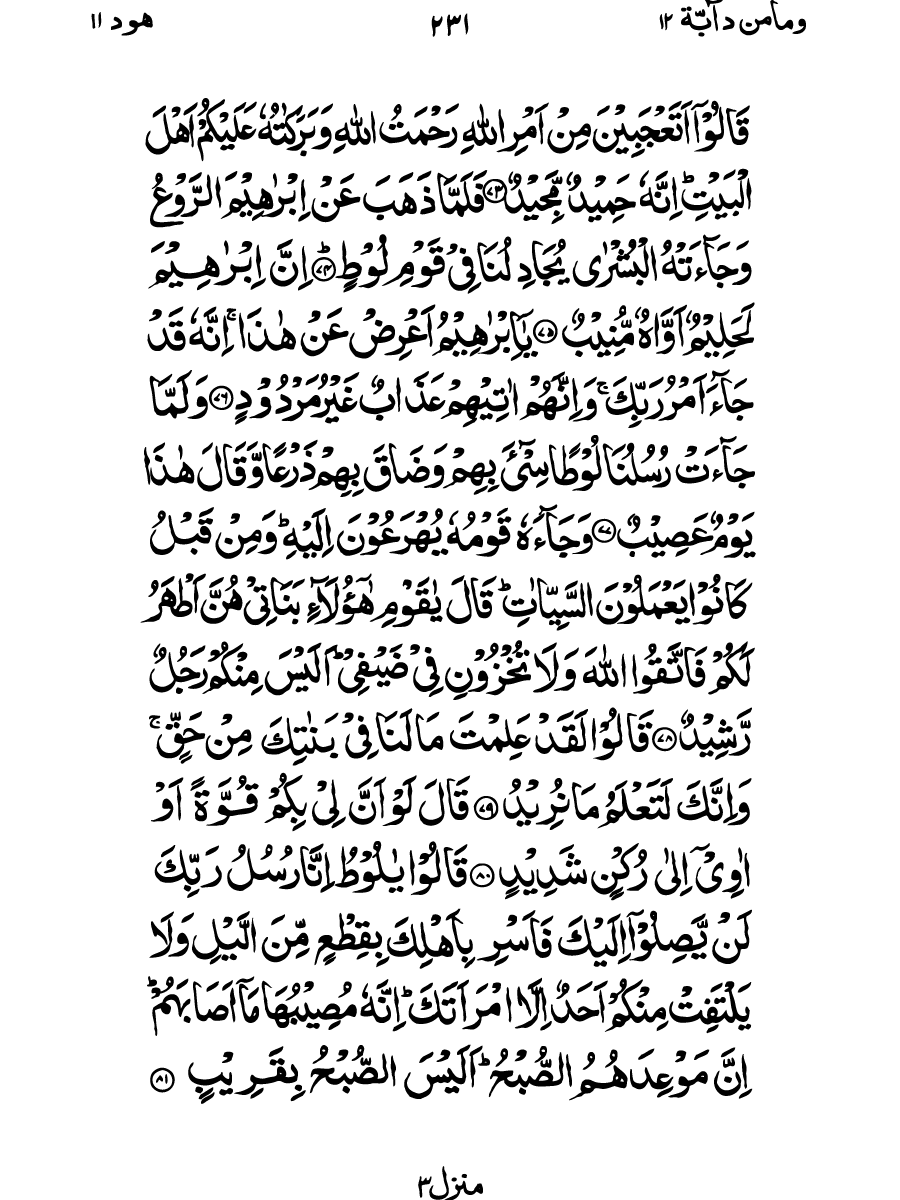 ومامن دآبّة ١٢ ٢٣١ هود ١١
قَالُوْۤا اَتَعْجَبِيْنَ مِنْ اَمْرِ اللّٰهِ رَحْمَتُ اللّٰهِ وَبَرَكٰتُهٗ عَلَيْكُمْ اَهْلَ
الْبَيْتِ ؕ اِنَّهٗ حَمِيْدٌ مَّجِيْدٌ ﴿٧٣﴾ فَلَمَّا ذَهَبَ عَنْ اِبْرٰهِيْمَ الرَّوْعُ
وَجَآءَتْهُ الْبُشْرٰى يُجَادِلُنَا فِيْ قَوْمِ لُوْطٍ ؕ ﴿٧٤﴾ اِنَّ اِبْرٰهِيْمَ
لَحَلِيْمٌ اَوَّاهٌ مُّنِيْبٌ ﴿٧٥﴾ يٰۤاِبْرٰهِيْمُ اَعْرِضْ عَنْ هٰذَا ۚ اِنَّهٗ قَدْ
جَآءَ اَمْرُ رَبِّكَ ۚ وَاِنَّهُمْ اٰتِيْهِمْ عَذَابٌ غَيْرُ مَرْدُوْدٍ ﴿٧٦﴾ وَلَمَّا
جَآءَتْ رُسُلُنَا لُوْطًا سِيْٓءَ بِهِمْ وَضَاقَ بِهِمْ ذَرْعًا وَّقَالَ هٰذَا
يَوْمٌ عَصِيْبٌ ﴿٧٧﴾ وَجَآءَهٗ قَوْمُهٗ يُهْرَعُوْنَ اِلَيْهِ ؕ وَمِنْ قَبْلُ
كَانُوْا يَعْمَلُوْنَ السَّيِّاٰتِ ؕ قَالَ يٰقَوْمِ هٰۤؤُلَآءِ بَنَاتِيْ هُنَّ اَطْهَرُ
لَكُمْ فَاتَّقُوا اللّٰهَ وَلَا تُخْزُوْنِ فِيْ ضَيْفِيْ ؕ اَلَيْسَ مِنْكُمْ رَجُلٌ
رَّشِيْدٌ ﴿٧٨﴾ قَالُوْا لَقَدْ عَلِمْتَ مَا لَنَا فِيْ بَنٰتِكَ مِنْ حَقٍّ ۚ
وَاِنَّكَ لَتَعْلَمُ مَا نُرِيْدُ ﴿٧٩﴾ قَالَ لَوْ اَنَّ لِيْ بِكُمْ قُوَّةً اَوْ
اٰوِيْۤ اِلٰى رُكْنٍ شَدِيْدٍ ﴿٨٠﴾ قَالُوْا يٰلُوْطُ اِنَّا رُسُلُ رَبِّكَ
لَنْ يَّصِلُوْۤا اِلَيْكَ فَاَسْرِ بِاَهْلِكَ بِقِطْعٍ مِّنَ الَّيْلِ وَلَا
يَلْتَفِتْ مِنْكُمْ اَحَدٌ اِلَّا امْرَاَتَكَ ؕ اِنَّهٗ مُصِيْبُهَا مَاۤ اَصَابَهُمْ ؕ
اِنَّ مَوْعِدَهُمُ الصُّبْحُ ؕ اَلَيْسَ الصُّبْحُ بِقَرِيْبٍ ﴿٨١﴾
منزل ٣